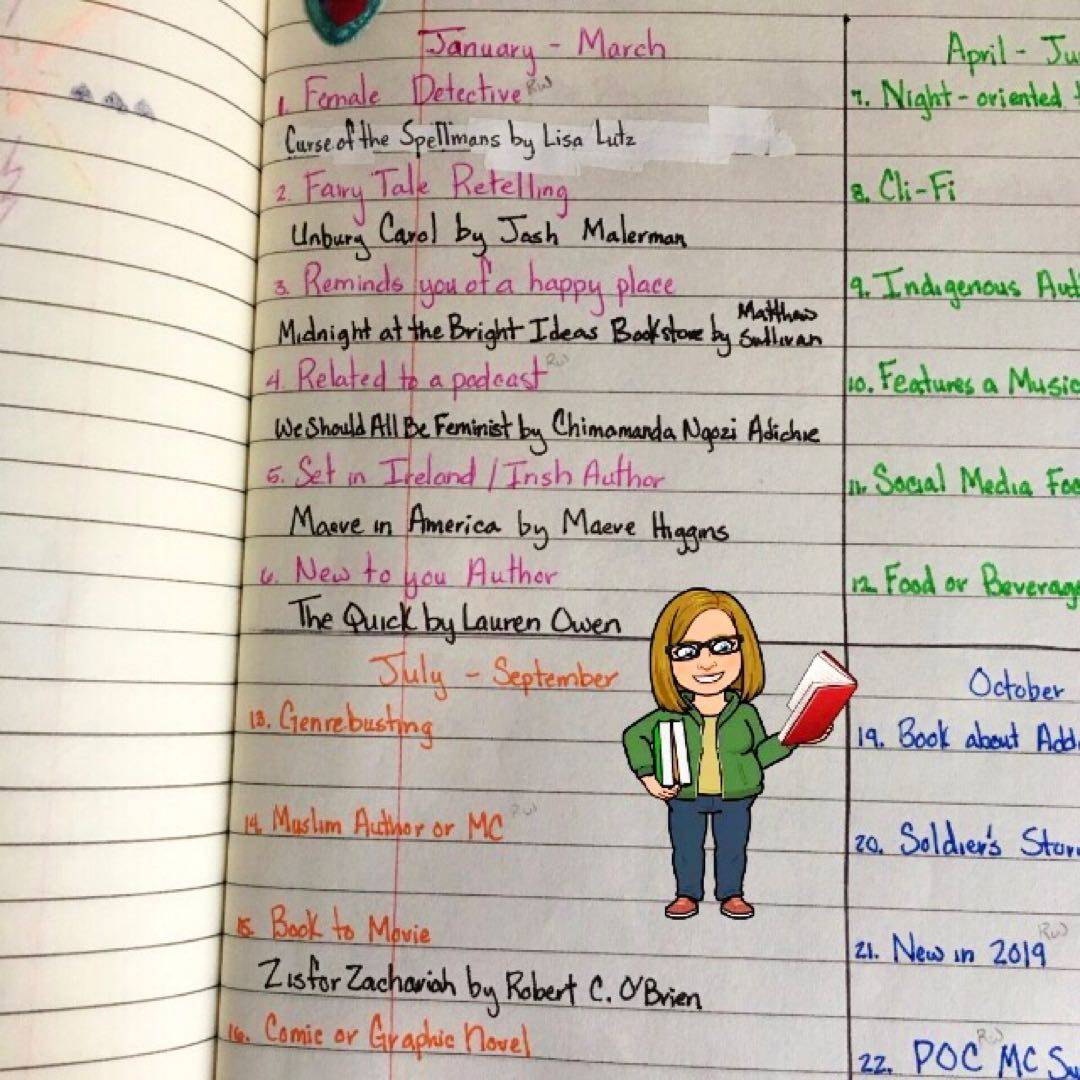 January - March
1. Female Detective RW
Curse of the Spellmans by Lisa Lutz
2. Fairy Tale Retelling
Unbury Carol by Josh Malerman
3. Reminds you of a happy place
Midnight at the Bright Ideas Bookstore by Matthew Sullivan
4. Related to a podcast RW
We Should All Be Feminist by Chimamanda Ngozi Adichie
5. Set in Ireland / Irish Author
Maeve in America by Maeve Higgins
6. New to you Author
The Quick by Lauren Owen
April - Ju
7. Night-oriented
8. Cli-Fi
9. Indigenous Aut
10. Features a Music
11. Social Media Foc
12. Food or Beverage
July - September
13. Genrebusting
14. Muslim Author or MC RW
15. Book to Movie
Z is for Zachariah by Robert C. O'Brien
16. Comic or Graphic Novel
October
19. Book about Add
20. Soldier's Stor
21. New in 2019 RW
22. POC MC RW